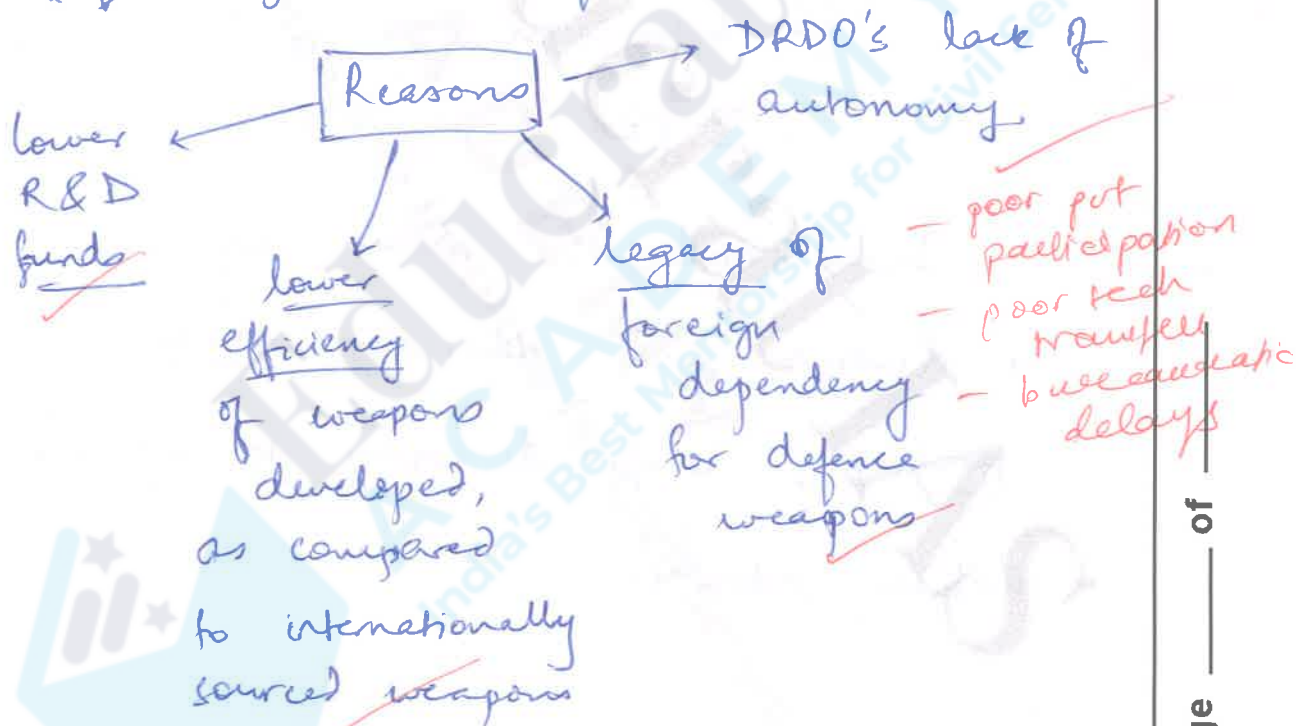 Reasons
DRDO's lack of
autonomy
lower
R&D
funds
lower
efficiency
of weapons
developed,
as compared
to internationally
sourced weapons
legacy of
foreign
dependency
for defence
weapons
- poor pvt
participation
- poor tech
transfer
- bureaucratic
delays
Educra
ACADEMY
India's Best Mentorship for Civil Ser
of